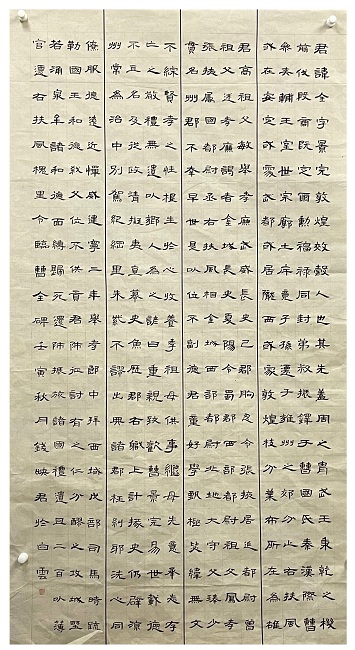 君諱全字景完敦煌效穀人也其先蓋周之胄武王秉乾之機
翦伐殷商既定爾勳福祿攸同封弟叔振鐸于曹國因氏焉秦漢之際曹
參夾輔王室世宗廓土斥竟子孫遷于雍州之郊分止右扶風
或在安定或處武都或居隴西或家敦煌枝分葉布所在為雄
君高祖父敏舉孝廉武威長史巴郡朐忍令張掖居延都尉曾
祖父述孝廉謁者金城長史夏陽令蜀郡西部都尉祖父鳳孝廉
張掖屬國都尉丞右扶風隃麋侯相金城西部都尉北地大守父琫少貫名
州郡不幸早世是以位不副德君童齓好學甄極毖緯無文
不綜賢孝之性根生於心收養季祖母供事繼母先意承志存
亡之敬禮無遺闕是以鄉人為之諺曰重親致歡曹景完易世載德
不隕其名及其從政清擬夷齊直慕史魚歷郡右職上計掾史仍辟涼
州常為治中別駕紀綱萬里朱紫不謬出典諸郡彈枉糾邪貪暴洗心同
僚服德遠近憚威建寧二年舉孝廉除郎中拜西域戊部司馬時疏
勒國王和德弒父篡位不供職貢君興師征討有吮膿之仁分醪之惠攻城野戰謀
若涌泉威牟諸賁和德面縛歸死還師振旅諸國禮遺且二百萬悉以薄
官遷右扶風槐里令臨曹全碑壬寅秋月錢映君於白雲